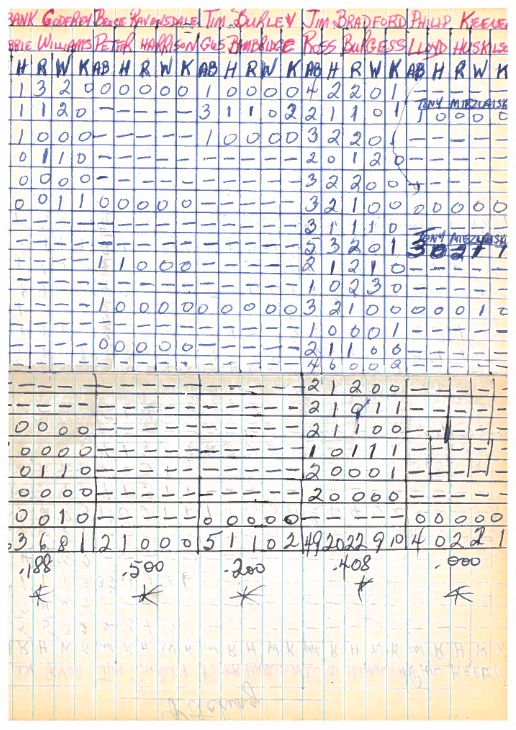 ANK GODFREY BRUCE RAVENSDALE TIM BURLEY JIM BRADFORD PHILIP KEEVE
RIE WILLIAMS PETER HARRISON GUS BAMBRIDGE ROSS BURGESS LLOYD HUSKILSO
H R W K AB H R W K AB H R W K AB H R W K AB H R W K
1 3 2 0 0 0 0 0 0 1 0 0 0 0 4 2 2 0 1
TONY MIEZLAISK
1 1 2 0 - - - - - 3 1 1 0 2 2 1 1 0 1 1 0 0 0 0
1 0 0 0 - - - - - 1 0 0 0 0 3 2 2 0 1 - - - - -
0 1 1 0 - - - - - - - - - - 2 0 1 2 0 - - - - -
0 0 0 0 - - - - - - - - - - 3 2 2 0 0 - - - -
0 0 1 1 0 0 0 0 0 - - - - - 3 2 1 0 0 0 0 0 0 0
- - - - - - - - - - - - - - 3 1 1 1 0
TONY MIEZLAISK
- - - - - - - - - - - - - - 5 3 2 0 1 3 0 2 1 1
- - - - 1 1 0 0 0 - - - - - 2 1 2 1 0 - - - - -
- - - - - - - - - - - - - - 1 0 2 3 0 - - - - -
- - - - 1 0 0 0 0 0 0 0 0 0 3 2 1 0 0 0 0 0 1 0
- - - - - - - - - - - - - - 1 0 0 0 1 - - - - -
- - - - 0 0 0 0 0 - - - - - 2 1 1 0 0 - - - - -
- - - - - - - - - - - - - - 4 0 0 0 2 - - - - -
- - - - - - - - - - - - - - 2 1 2 0 0 - - - - -
- - - - - - - - - - - - - - 2 1 1 1 - - - - -
0 0 0 0 - - - - - - - - - - 2 1 1 0 0 - - - -
0 0 0 0 - - - - - - - - - - 1 0 1 1 1 - - - - -
0 1 1 0 - - - - - - - - - - 2 0 0 0 1 - - - - -
0 0 0 0 - - - - - - - - - - 2 0 0 0 0 - - - - -
0 0 1 0 - - - - - 0 0 0 0 0 - - - - - 0 0 0 0 0
3 6 8 1 2 1 0 0 0 5 1 1 0 2 49 20 22 9 10 4 0 2 2 1
.188 .500 .200 .408 .000